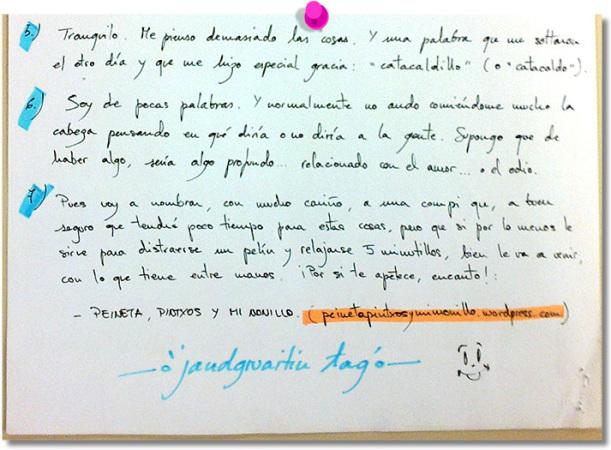 5.) Tranquilo. Me pienso demasiado las cosas. Y una palabra que me soltaron
el otro día y que me hizo especial gracia: "catacaldillo" (o "catacaldo").
6.) Soy de pocas palabras. Y normalmente no ando comiéndome mucho la
cabeza pensando en qué diría o no diría a la gente. Supongo que de
haber algo, sería algo profundo... relacionado con el amor... o el odio.
7.) Pues voy a nombrar, con mucho cariño, a una compi que, a buen
seguro que tendrá poco tiempo para estas cosas, pero que si por lo menos le
sirve para distraerse un pelín y relajarse 5 minutillos, bien le va a venir,
con lo que tiene entre manos. ¡Por si te apetece, encanto!:
- PEINETA, PINTXOS Y MI MONILLO. (peinetapintxosymimonillo.wordpress.com)